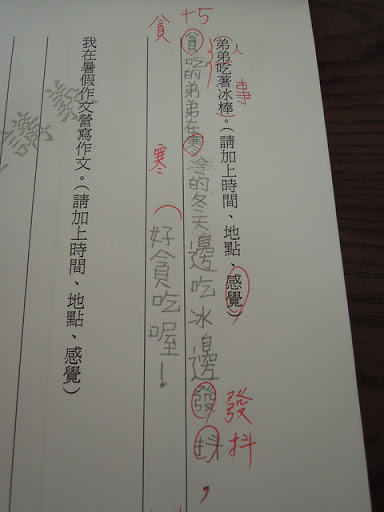 人
事
發抖
弟弟吃著冰棒。(請加上時間、地點、感覺)
+5
貪吃的弟弟在寒冷的冬天邊吃冰邊發抖,
貪
寒
好貪吃喔!
我在暑假作文營寫作文。(請加上時間、地點、感覺)